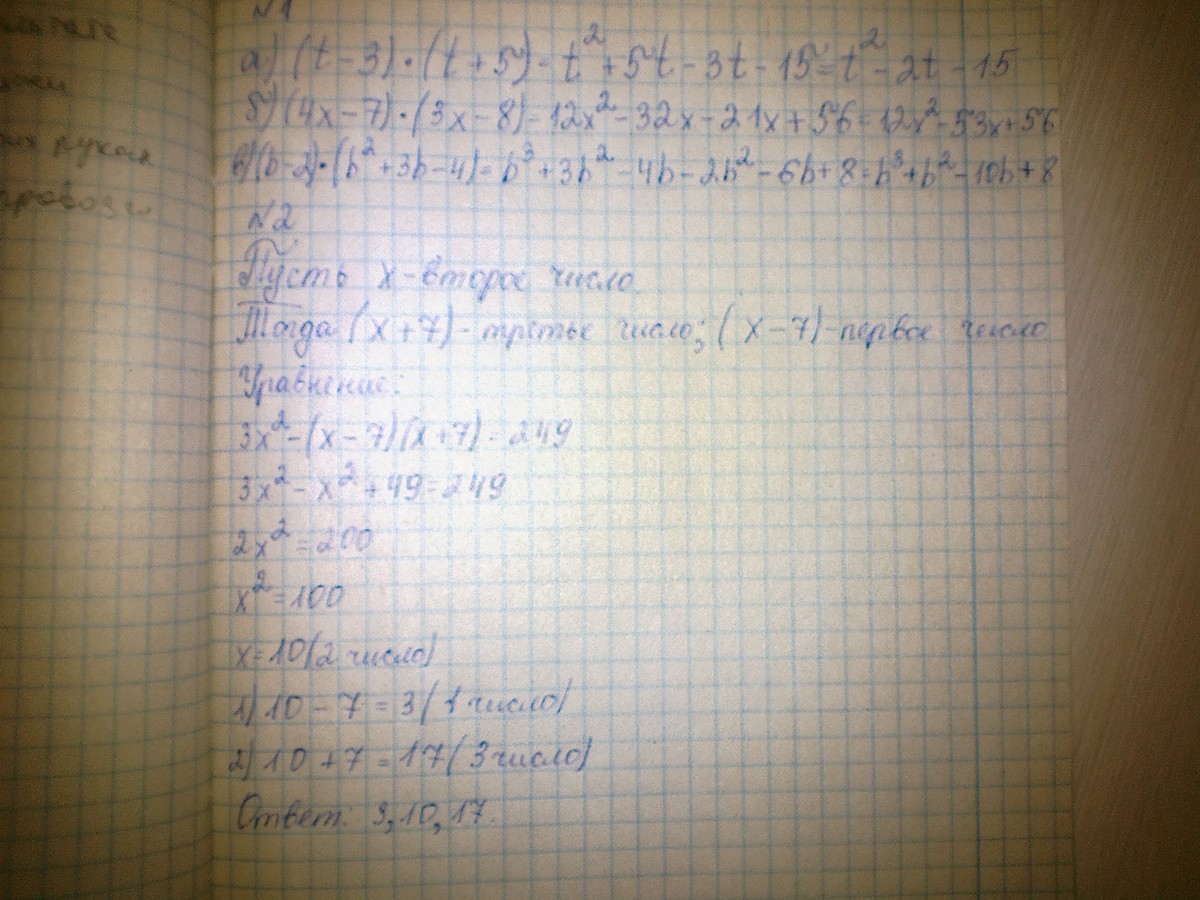 №1
а) (t-3)·(t+5)-t²+5t-3t-15=t²-2t-15
б) (4x-7)·(3x-8)-12x²-32x-21x+56=12x²-53x+56
в) (b-2)·(b²+3b-4)=b³+3b²-4b-2b²-6b+8=b³+b²-10b+8
№2
Пусть x-второе число.
Тогда (x+7)-третье число; (x-7)-первое число
Уравнение:
3x²-(x-7)(x+7)-249
3x²-x²+49=249
2x²=200
x²=100
x=10(2 число)
1) 10-7=3(1 число)
2) 10+7=17(3 число)
Ответ: 3,10,17.